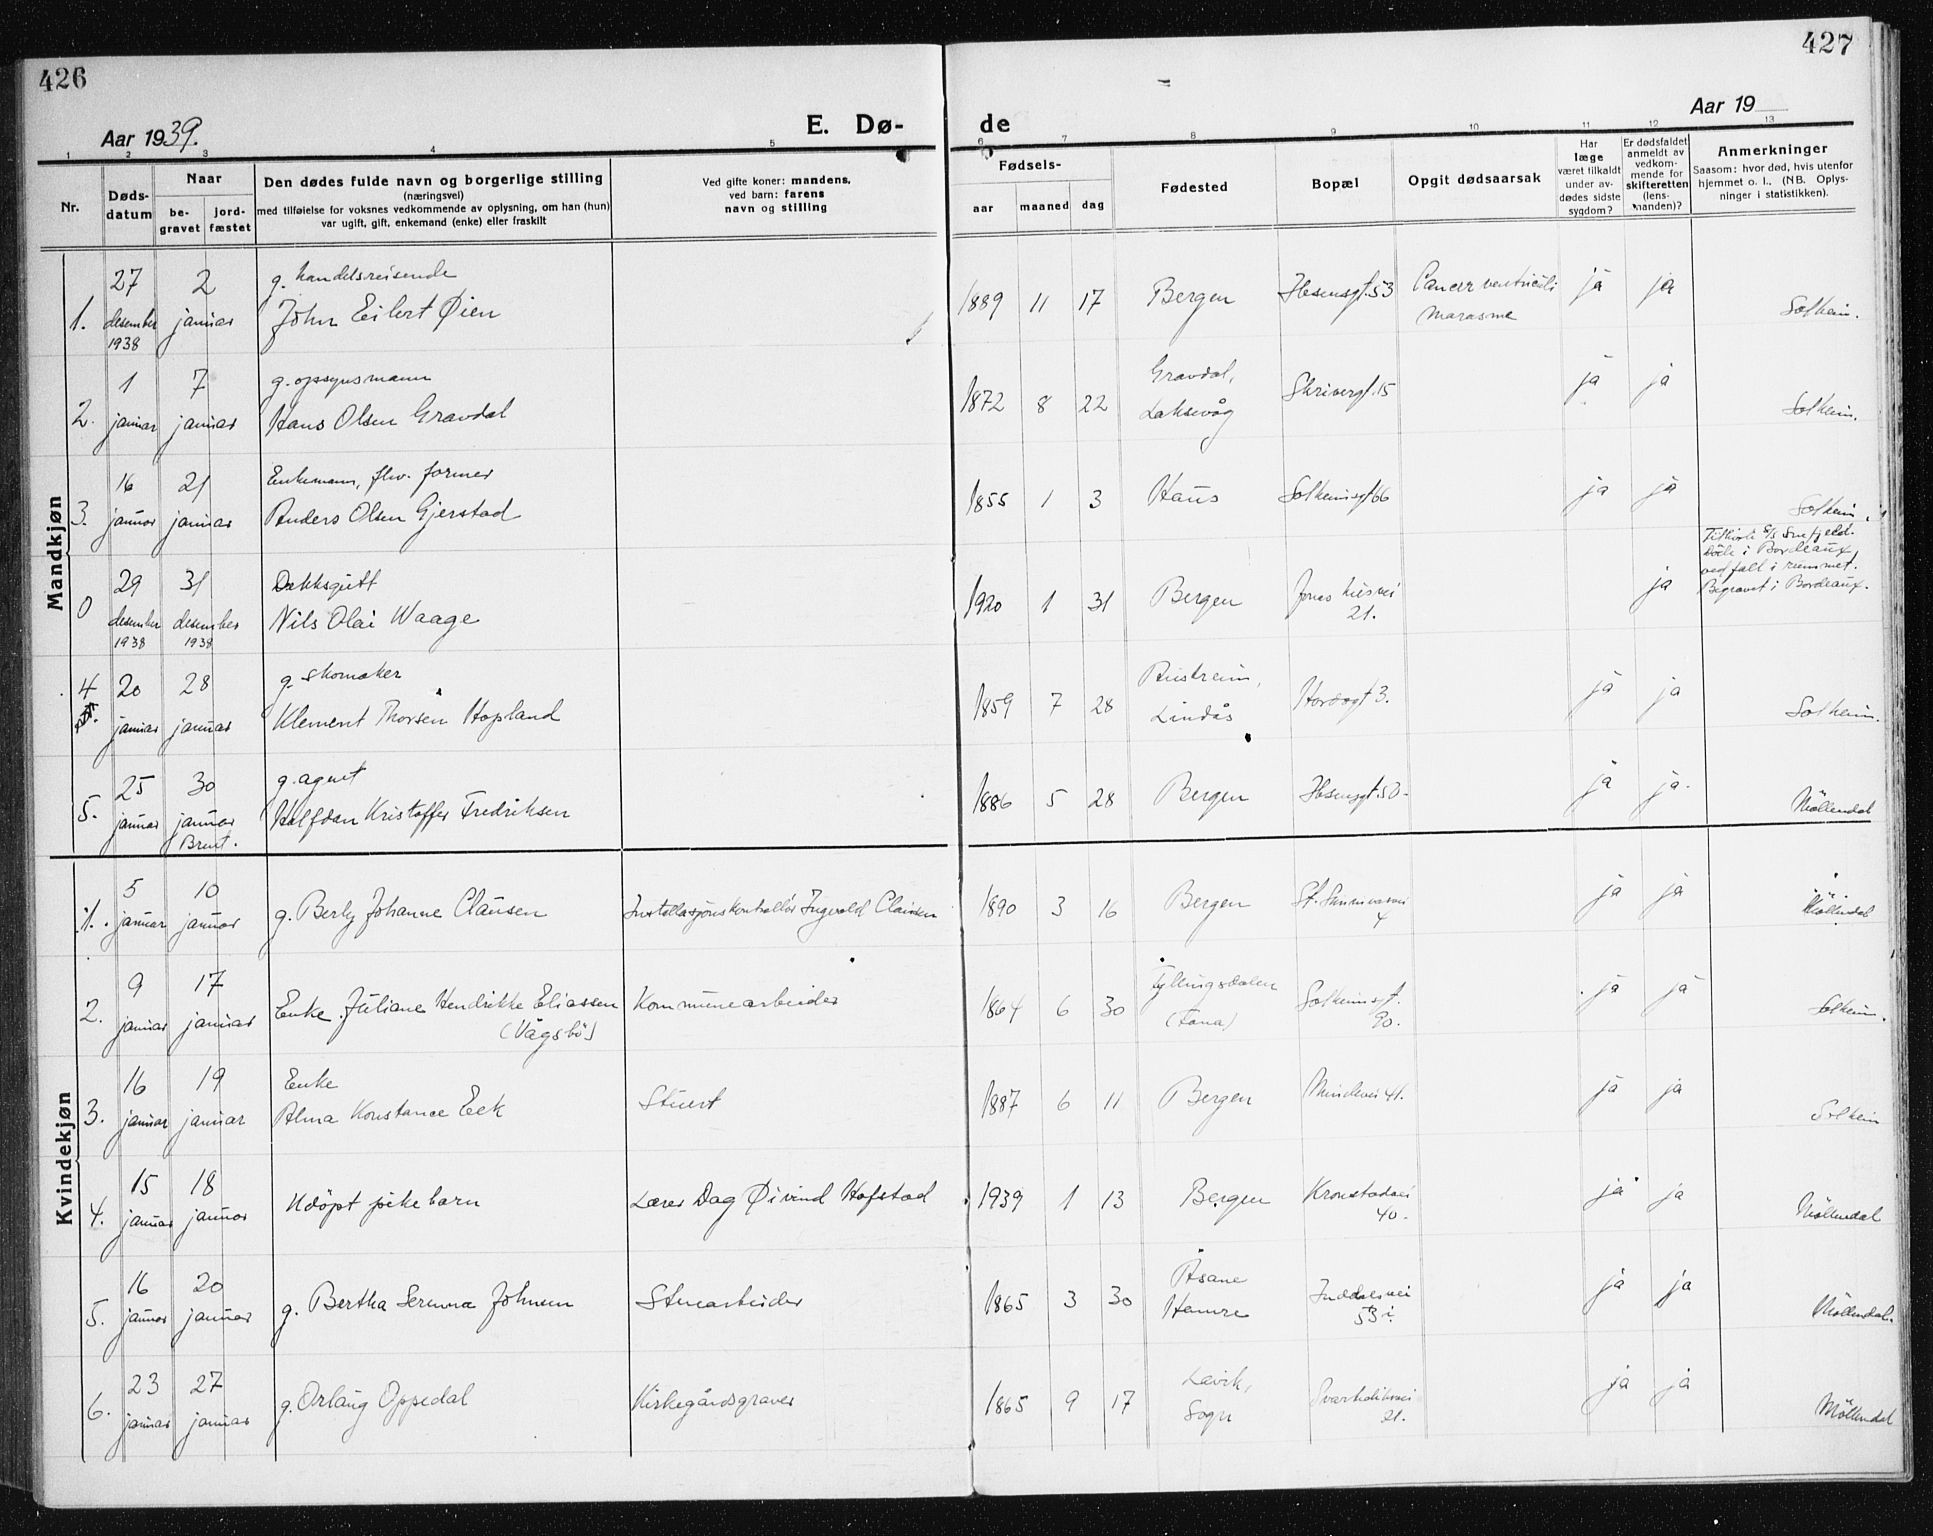 426
427
Aar 1939.
E. Dø-
de
Aar 19
1 2 3 4 5 6 7 8 9 10 11 12 13
Nr.
Døds-
datum
Naar
be-
gravet
jord-
fæstet
Den dødes fulde navn og borgerlige stilling
(næringsvei)
med tilføielse for voksnes vedkommende av oplysning, om han (hun)
var ugift, gift, enkemand (enke) eller fraskilt
Ved gifte koner: mandens,
ved barn: farens
navn og stilling
Fødsels-
aar maaned dag
Fødested
Bopæl
Opgit dødsaarsak
Har
læge
været tilkaldt
under av-
dødes sidste
sygdom?
Er dødsfaldet
anmeldt av
vedkom-
mende for
skifteretten
(lens-
manden)?
Anmerkninger
Saasom: hvor død, hvis utenfor
hjemmet o. l., (NB. Oplys-
ninger i statistikken).
Mandkjøn
27 2 g. handelsreisende
1. desember januar John Eilert Øien 1889 11 17 Bergen Ibsensgt. 53 Cancer ventriculi ja ja
1938 marasme Solheim.
1 7 g. opsynsmann Gravdal,
2. januar januar Hans Olsen Gravdal 1872 8 22 Laksevåg Skrivergt. 15 ja ja Solheim.
16 21 Enkemann, fhv. former
3. januar januar Anders Olsen Gjerstad 1855 1 3 Haus Solheimsgt 66 ja ja Solheim.
29 31 Dekksgutt
0 desember desember Nils Olai Waage 1920 1 31 Bergen Jonas Liesvei ja
1938 1938 21.
S/S Snefjeld.
Döde i Bordeaux,
ved fall i rummet.
Begravet i Bordeaux.
4 20 28 g. skomaker Austreim,
januar januar Klement Thorsen Hopland 1859 7 28 Lindås Hordagt 3. ja ja Solheim.
25 30 g. agent
5. januar januar Halfdan Kristoffer Fredriksen 1886 5 28 Bergen Ibsensgt. 50. ja ja. Møllendal
Brent.
Kvindekjøn
5 10
1. januar januar g. Berly Johanne Clausen Installasjonskontrollør Ingvald Clausen 1890 3 16 Bergen ja ja Møllendal
4
9 17 Fyllingsdalen
2. januar januar Enke Juliane Hendrikke Eliassen Kommunearbeider 1864 6 30 (Fana) Solheimsgt. ja ja Solheim.
(Vågsbö) 90.
16 19 Enke
3. januar januar Alma Konstance Eek Stuert 1887 6 11 Bergen Mindevei 41. ja ja Solheim
15 18
4. januar januar Udöpt pikebarn Lærer Dag Øivind Hofstad 1939 1 13 Bergen Kronstadvei ja ja Møllendal
40.
16 20 Åsane
5. januar januar g. Bertha Serenna Johnsen Stuearbeider 1865 3 30 Hamre Inndalsvei ja ja Møllendal.
53
23 27 Lavik,
6. januar januar g. Orlaug Oppedal Kirkegårdsgraver 1865 9 17 Sogn ja ja Møllendal
21.